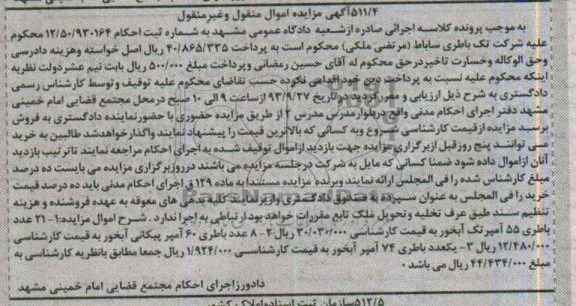 ۵۱۱/۴آگهی مزایده اموال منقول وغیرمنقول
به موجب پرونده کلاسه اجرائی صادره ازشعبه دادگاه عمومی مشهد به شماره ثبت احکام ۱۲/۵۰/۹۳۰۱۶۴ محکوم
علیه شرکت تک باطری ساباط (مرتضی ملکی) محکوم است به پرداخت ۴۰/۸۶۵/۳۳۵ ریال اصل خواسته وهزینه دادرسی
وحق الوکاله وخسارت تاخیردرحق محکوم له آقای حسین رمضانی وپرداخت مبلغ ۵۰۰/۰۰۰ ریال بابت نیم عشردولت نظربه
اینکه محکوم علیه نسبت به پرداخت دین خود اقدامی نکرده حسب تقاضای محکوم علیه توقیف و توسط کارشناس رسمی
دادگستری به شرح ذیل ارزیابی و مقررگردید درتاریخ ۹۳/۹/۲۷ ازساعت ۹ الی ۱۰ صبح درمحل مجتمع قضایی امام خمینی
مشهد دفتر اجرای احکام مدنی واقع دربلوارمدرس مدرس ۲ از طریق مزایده حضوری با حضورنماینده دادگستری به فروش
برسد مزایده ازقیمت کارشناسی شروع وبه کسانی که بالاترین قیمت را پیشنهاد نمایند واگذار خواهدشد طالبین به خرید
می توانند پنج روزقبل ازبرگزاری مزایده جهت بازدید ازاموال توقیف شده به اجرای احکام مراجعه نمایند تاترتیب بازدید
آنان ازاموال داده شود ضمنا کسانی که مایل به شرکت درجلسه مزایده می باشند درروزبرگزاری مزایده می بایست ده درصد
مبلغ کارشناس شده را فی المجلس ارائه نمایند وبرنده مزایده مستندا به ماده ۱۲۹ ق اجرای احکام مدنی باید ده درصد قیمت
خرید را فی المجلس به عنوان سپرده به صندوق دادگستری واریزنمایند کلیه بدهی های معوقه به عهده فروشنده و هزینه
تنظیم سند طبق عرف تخلیه و تحویل ملک تابع مقررات خواهد بود ارتباطی به اجرا ندارد . شرح اموال مزایده:۱- ۲۱ عدد
باطری ۵۵ آمپرتک آبخور به قیمت کارشناسی ۳۰/۰۳۰/۰۰۰ ریال ۲- ۸ عدد باطری ۶۰ آمپر پیکانی آبخور به قیمت کارشناسی
۱۲/۴۸۰/۰۰۰ ریال ۳- یکعدد باطری ۷۴ آمپر آبخور به قیمت کارشناسی ۱/۹۲۴/۰۰۰ ریال جمعا مطابق بانظریه کارشناسی به
مبلغ ۴۴/۴۳۴/۰۰۰ ریال می باشد .
دادورزاجرای احکام مجتمع قضایی امام خمینی مشهد
۵۱۲/۵سازمان ثبت اسناد واملاک کشور